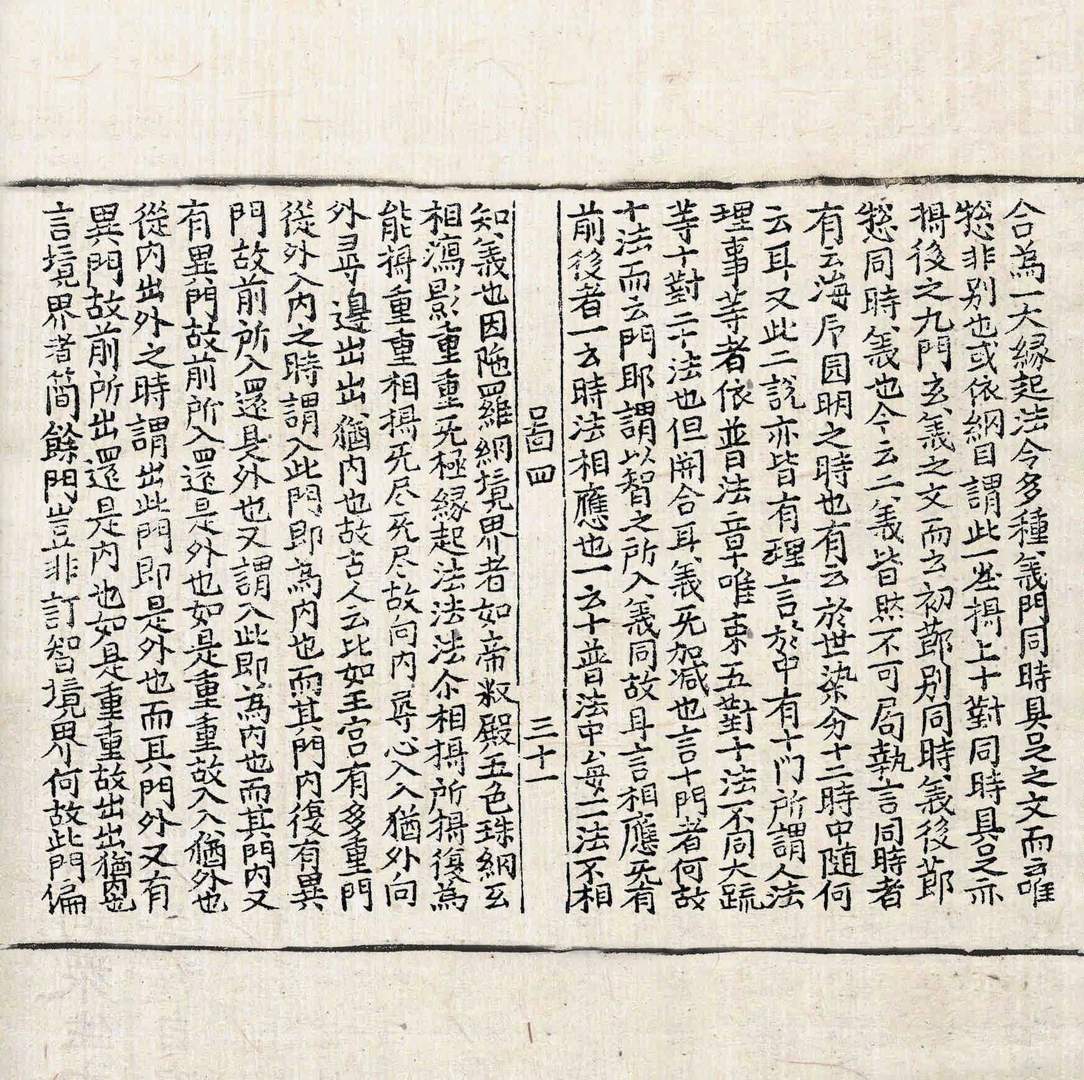 合為一大緣起法今多種義門同時具足之文而云唯
惣非别也或依綱目謂此一㘴揖上十對同時具足之亦
揖後之九門玄義之文而云初莭别同時義後莭
惣同時義也今云二義皆然不可局執言同時者
有云海印圆明之時也有云於世染分十二時中随何
云耳又此二說亦皆有理言於中有十門所謂人法
理事等者依並普法章唯束五對十法不同大䟽
等十對二十法也但開合耳義无加减也言十門者何故
十法而云門耶謂以智之所入義同故耳言相應无有
前後者一云時法相應也一云十普法中每二法不相
囗啚四 三十一
知義也因陁羅網境界者如帝釈殿五色珠網玄
相瀉影重重无極緣起法法法尒相揖所揖復為
能揖重重相揖无尽无尽故向内尋心入入猶外向
外尋邊出出猶内也故古人云比如王宫有多重門
從外入内之時謂入此門即為内也而其門内復有異
門故前所入還是外也又謂入此即為内也而其門内又
有異門故前所入還是外也如是重重故入入猶外也
從内出外之時謂出此門即是外也而其門外又有
異門故前所出還是内也如是重重故出出猶内也
言境界者簡餘門豈非訂智境界何故此門偏